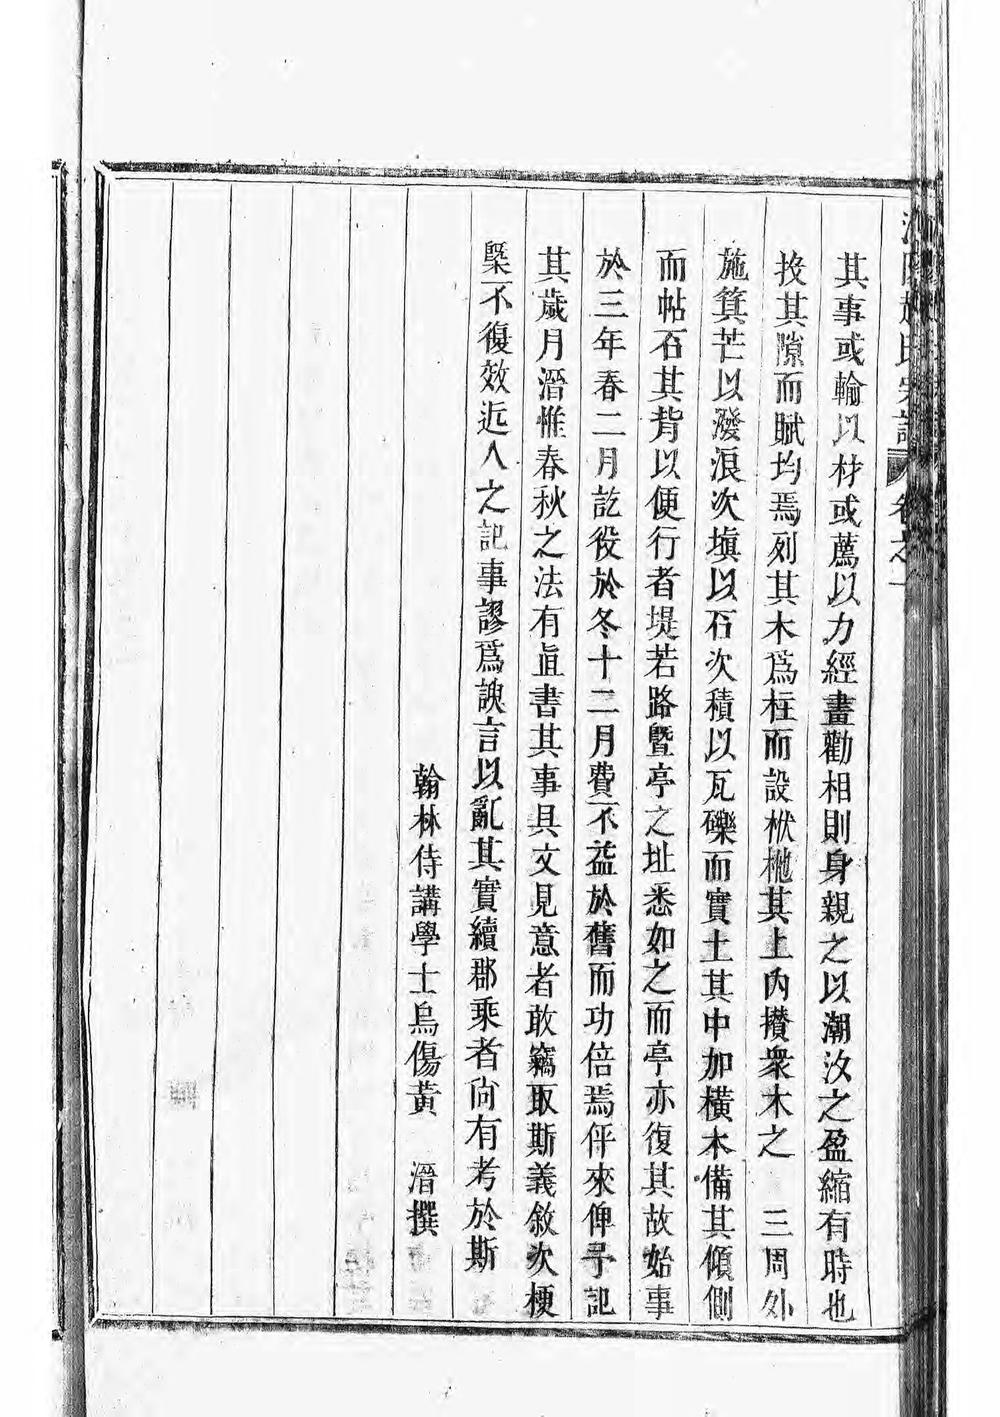 其事或輸以材或薦以力經畫勸相則身親之以潮汐之盈縮有時也
投其隙而賦均焉列其木爲柱而設栿杝其上內攢衆木之　三周外
施箕芒以潑浪次塡以石次積以瓦礫而實土其中加橫木備其傾側
而帖石其背以便行者堤若路曁亭之址悉如之而亭亦復其故始事
於三年春二月訖役於冬十二月費不益於舊而功倍焉伻來俾予記
其歲月溍惟春秋之法有直書其事具文見意者敢竊取斯義敘次梗
槩不復效近人之記事謬爲諛言以亂其實續郡乘者尙有考於斯
翰林侍講學士烏傷黃　溍撰
氏宗譜 卷之一